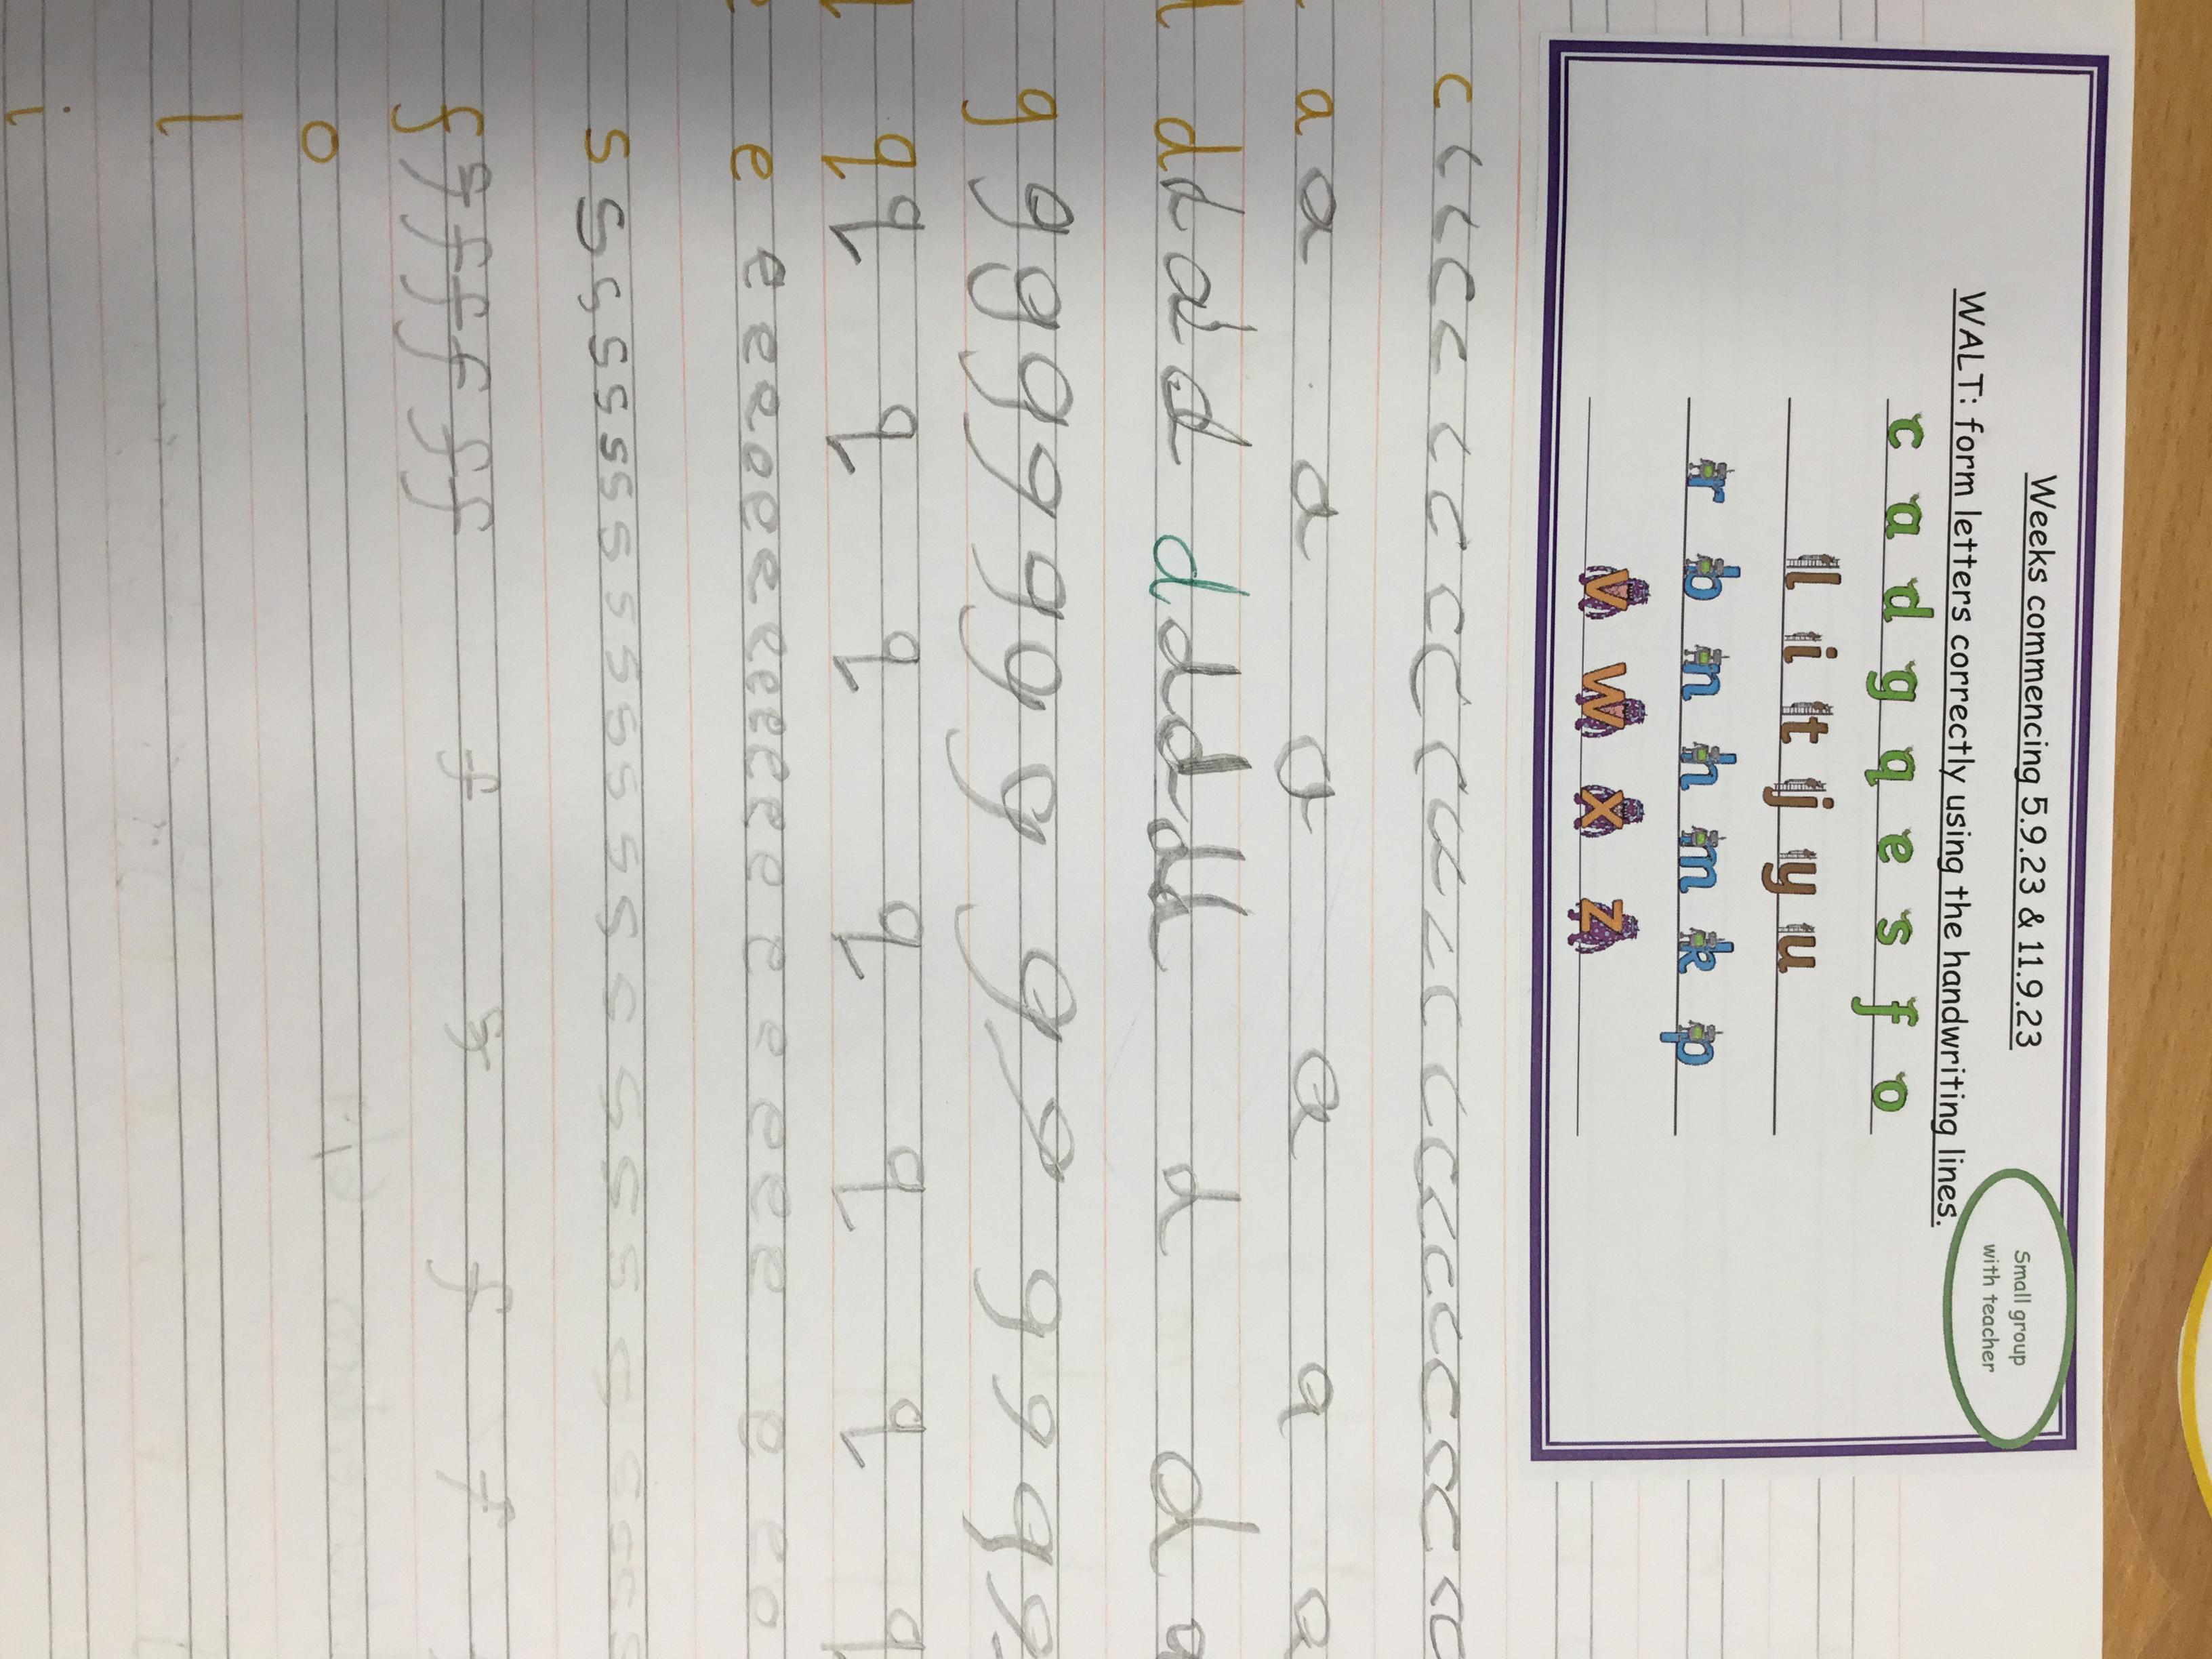 Weeks commencing 5.9.23 & 11.9.23
Small group
with teacher
WALT: form letters correctly using the handwriting lines.
c a d g q e s f o
l i t j y u
r b n h m k p
v w x z
c c c c c c c c c c c c c c u c c c c c c c c c c c c c c c
a a a a a a a
d d d d d d d d d d d d
g g g g g g g g g g g g g g
q q q q q q q q
e e e e e e e e e e e e e e e e e e e e
s s s s s s s s s s s s s s s s s s s s s s s s
f f f f f f f f f f f
o
l
i